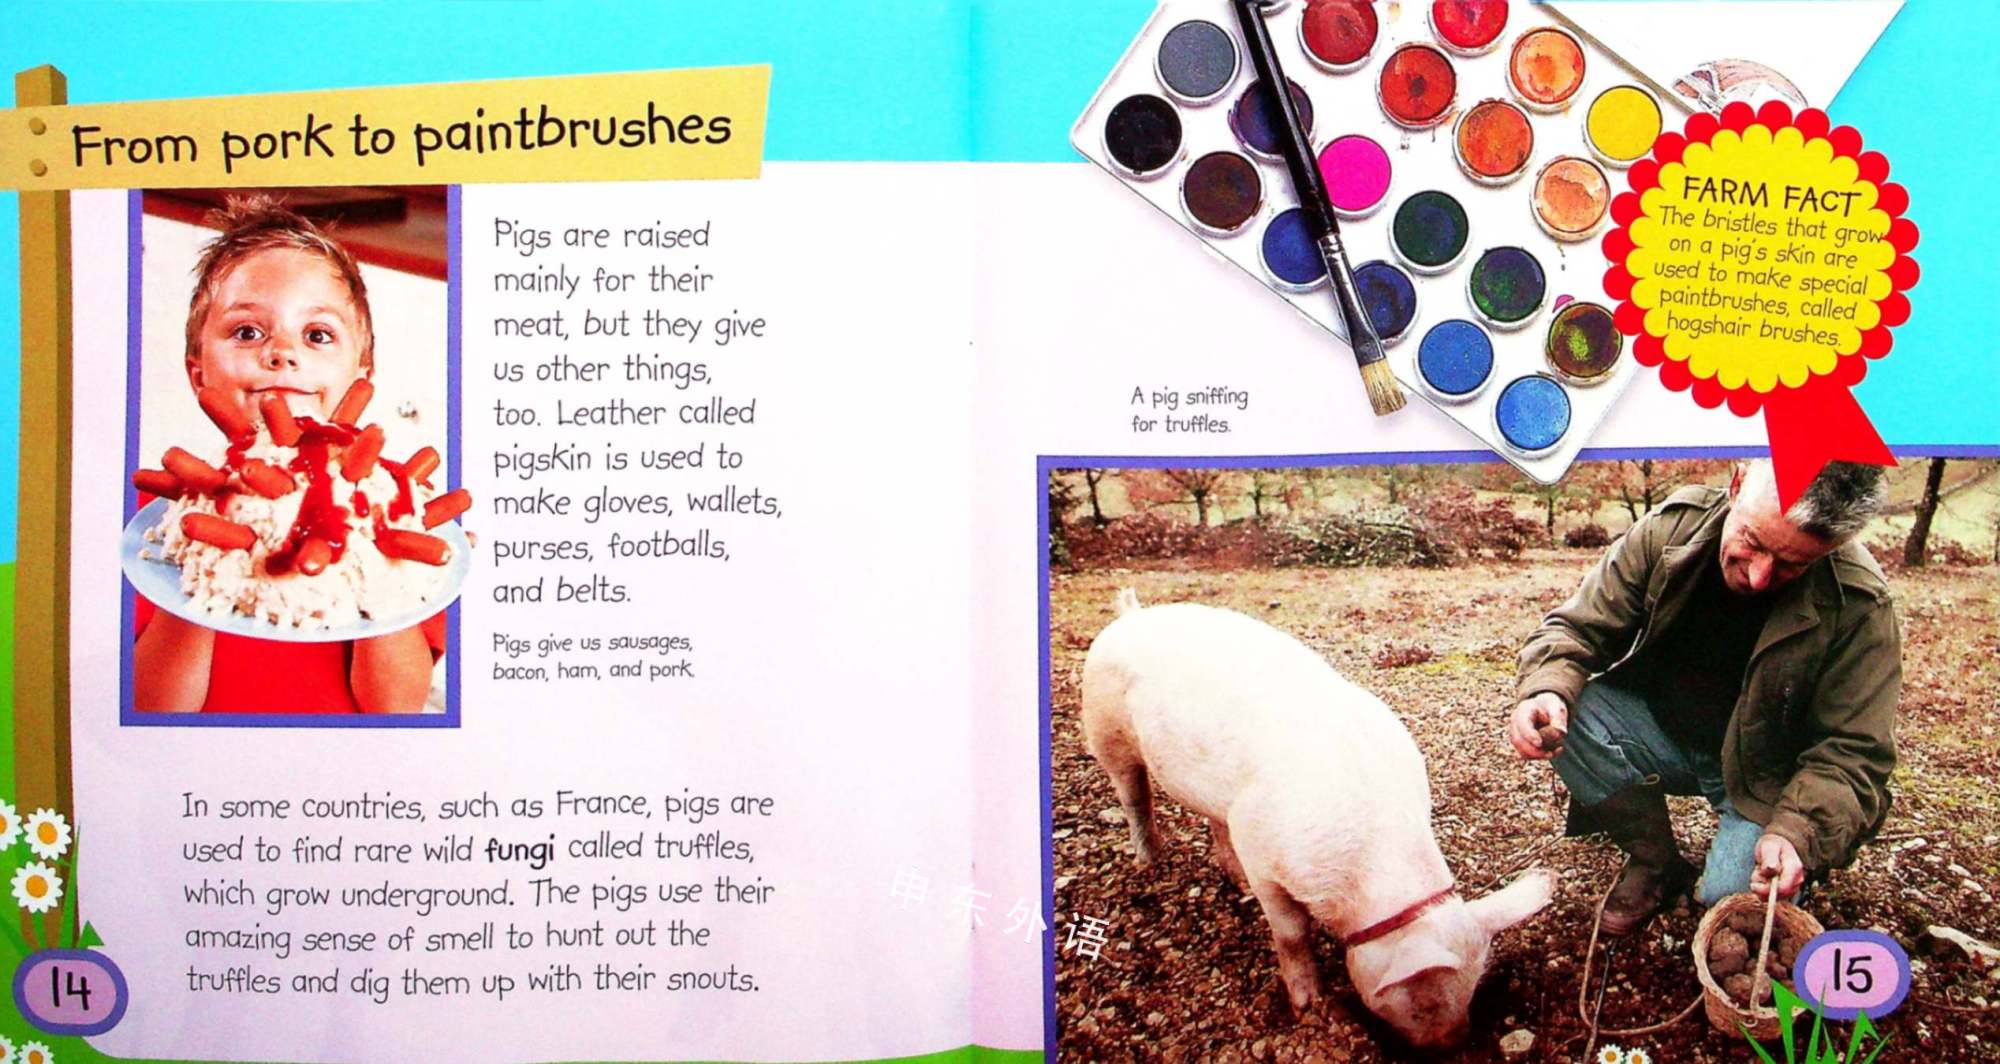 From pork to paintbrushes
Pigs are raised
mainly for their
meat, but they give
us other things,
too. Leather called
pigskin is used to
make gloves, wallets,
purses, footballs,
and belts.
Pigs give us sausages,
bacon, ham, and pork.
In some countries, such as France, pigs are
used to find rare wild fungi called truffles,
which grow underground. The pigs use their
amazing sense of smell to hunt out the
truffles and dig them up with their snouts.
14
FARM FACT
The bristles that grow
on a pig's skin are
used to make special
paintbrushes, called
hogshair brushes.
A pig sniffing
for truffles.
15
申东外语